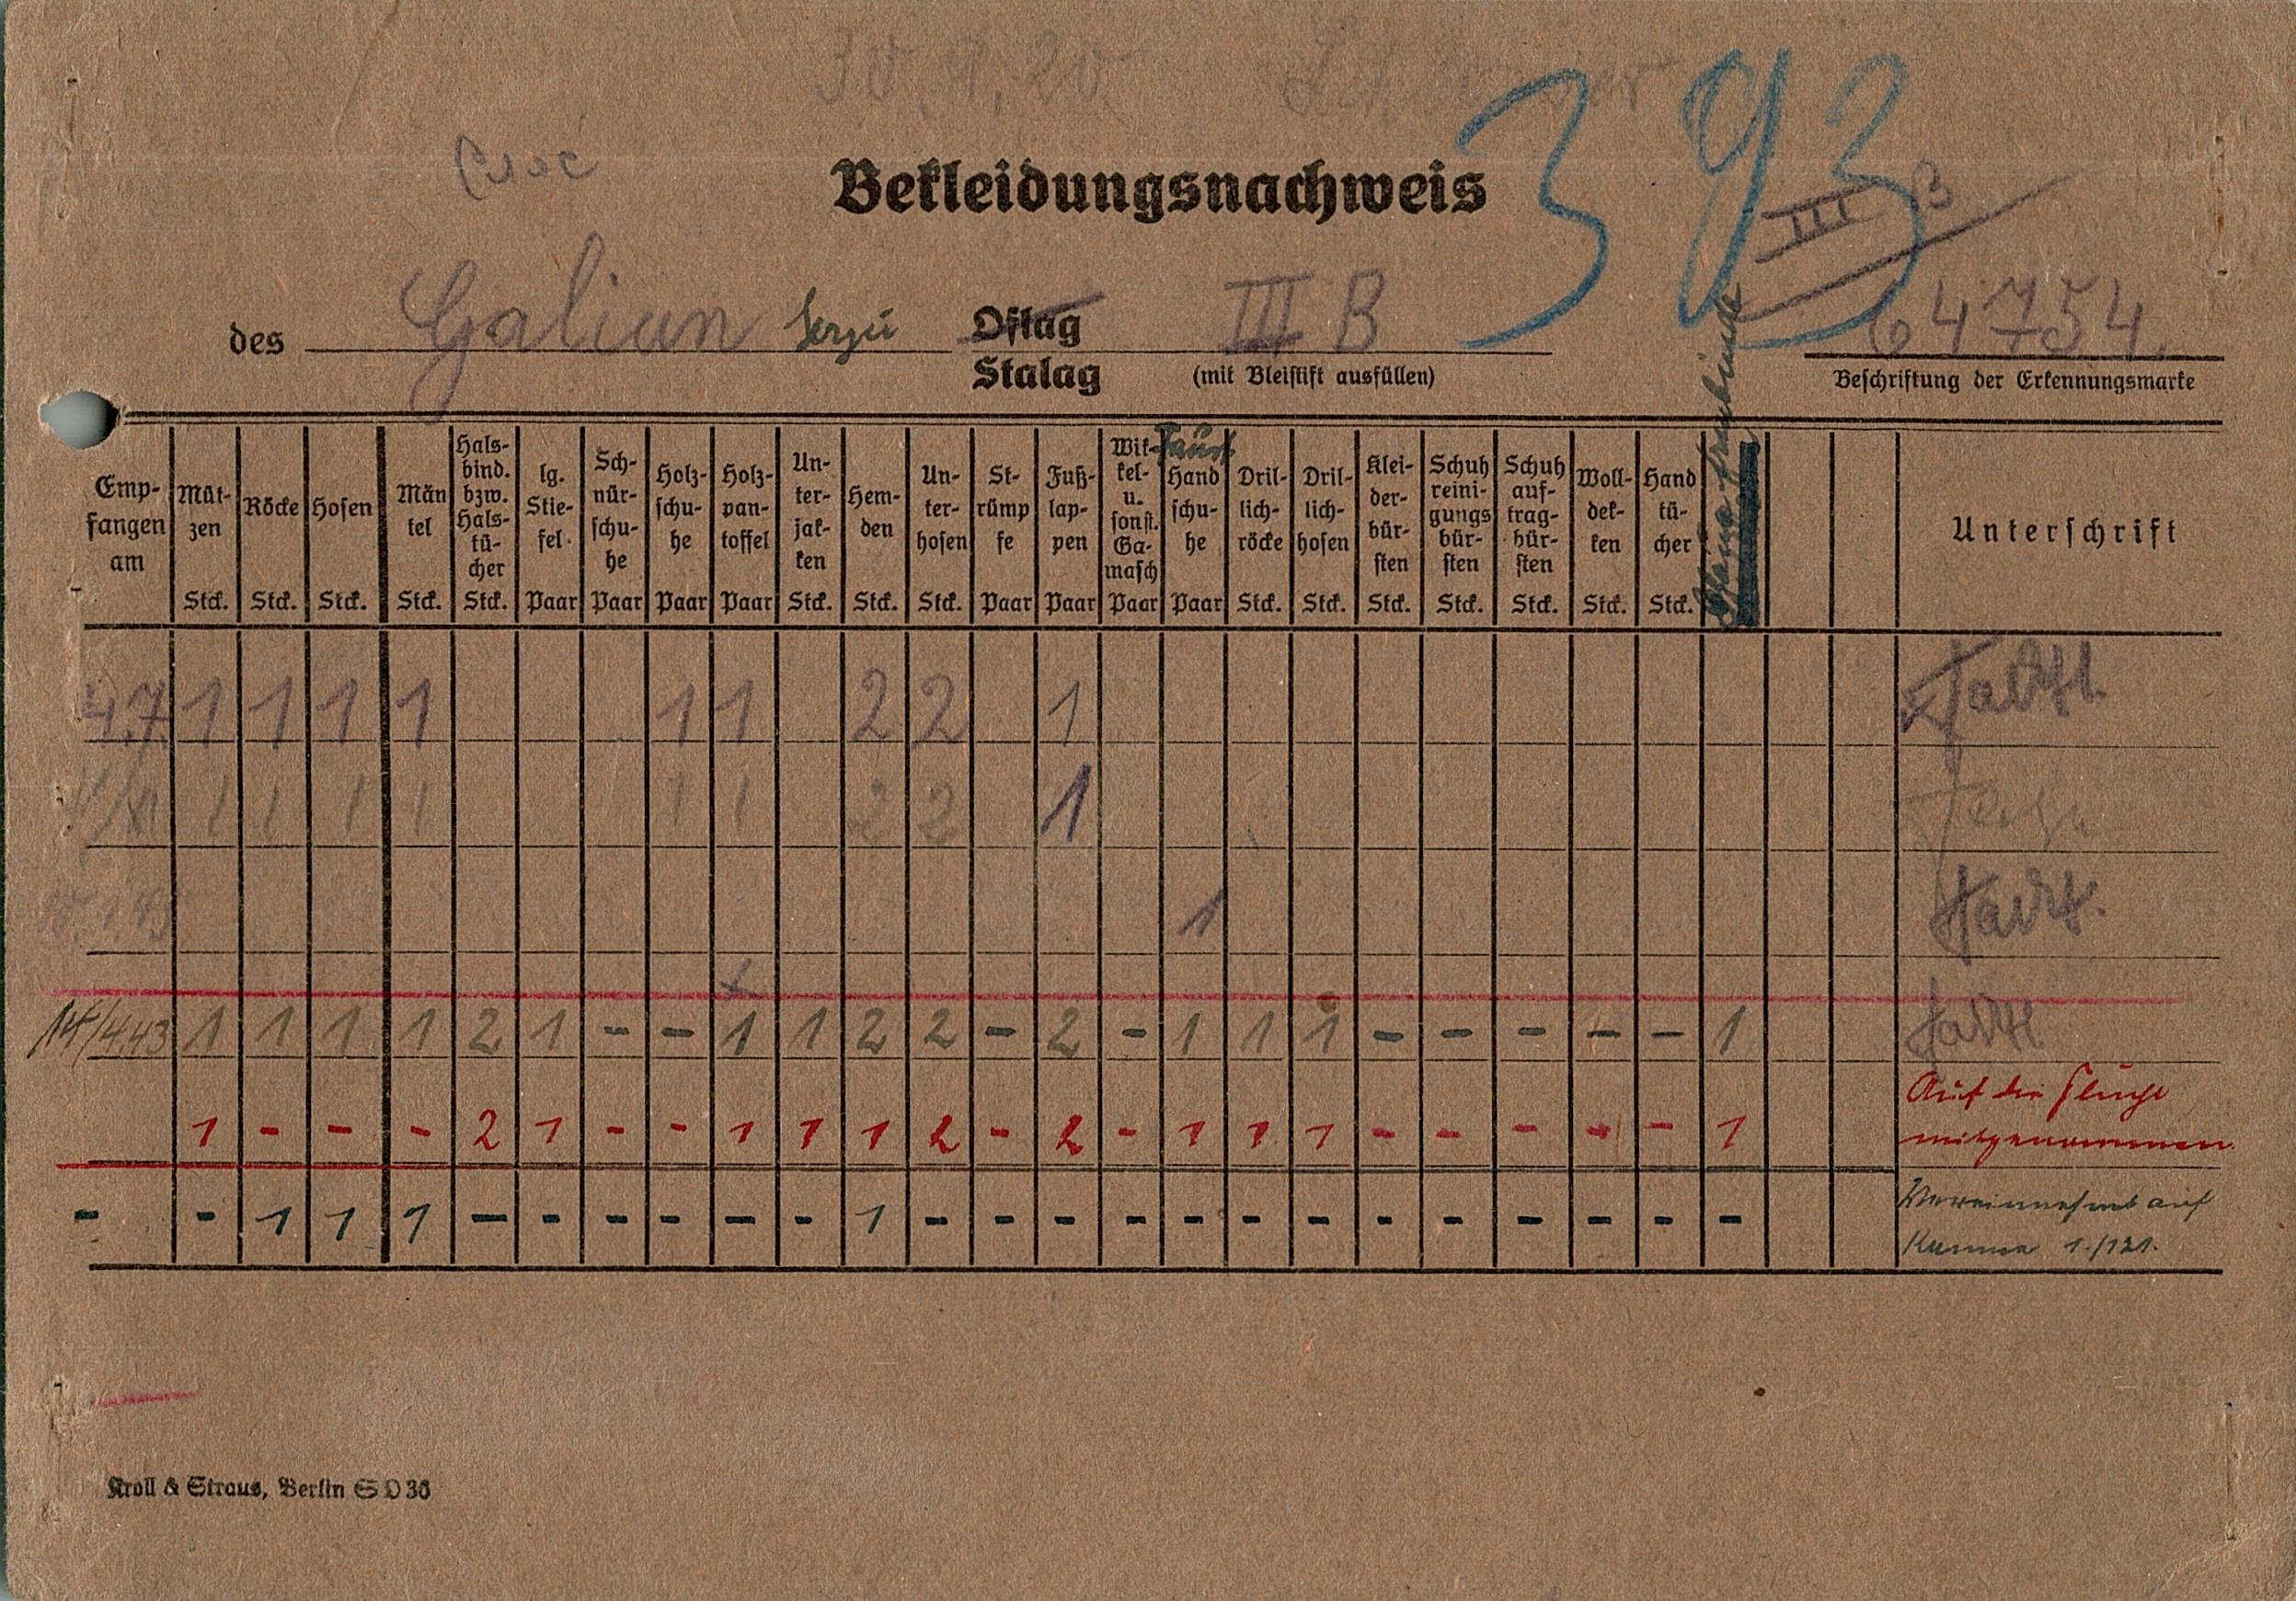 393
Bekleidungsnachweis
III B
des Galian Sergei Oflag III B 64754.
Stalag (mit Bleistift ausfüllen) Beschriftung der Erkennungsmarke
Emp-fangen am
Müt-zen Stck.
Röcke Stck.
Hosen Stck.
Män tel Stck.
Hals-bind. bzw. Hals-tü-cher Stck.
lg. Stie-fel. Paar
Sch-nür-schu-he Paar
Holz-schu-he Paar
Holz-pan-toffel Paar
Un-ter-jak-ken Stck.
Hem-den Stck.
Un-ter-hosen Stck.
St-rümp fe Paar
Fuß-lap-pen Paar
Wik-kel-u. sonst. Ga-masch Paar
Faust Hand schu-he Paar
Dril-lich-röcke Stck.
Dril-lich-hosen Stck.
Klei-der-bür-sten Stck.
Schuh reini-gungs bür-sten Stck.
Schuh auf-trag-bür-sten Stck.
Woll-dek-ken Stck.
Hand tü-cher Stck.
Unterschrift
4.7. 1 1 1 1 1 1 2 2 1
1 1 1 1 1 1 2 2 1
1
14/4.43 1 1 1 1 2 1 - - 1 1 2 2 - 2 - 1 1 1 - - - - - 1
1 - - - 2 1 - - 1 1 1 2 - 2 - 1 1 1 - - - - - 1 Auf die Flucht
mitgenommen.
- - 1 1 1 - - - - - - 1 - - - - - - - - - - - - - auf
1./131.
Kroll & Straus, Berlin SO 36